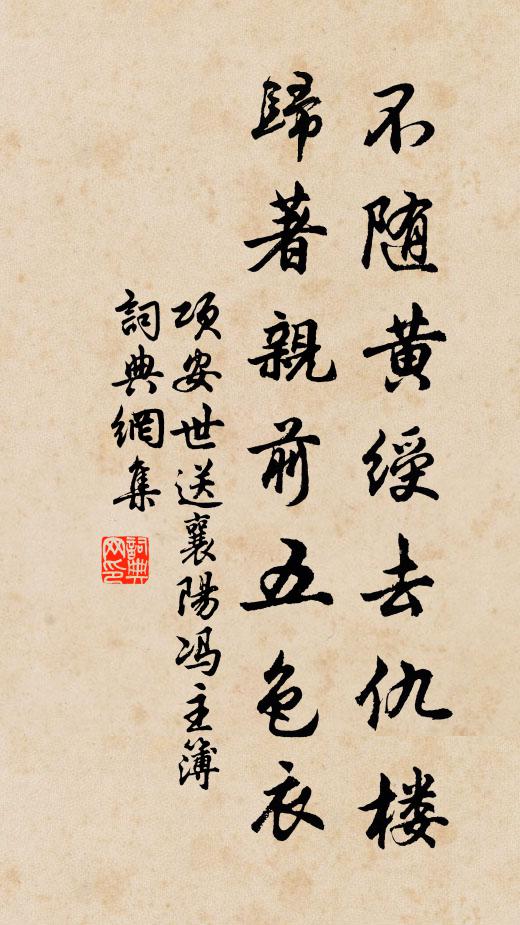 不随黄綬去仇楼
歸著親前五色衣
项安世送襄陽冯主簿
詞典網集
詞典网印